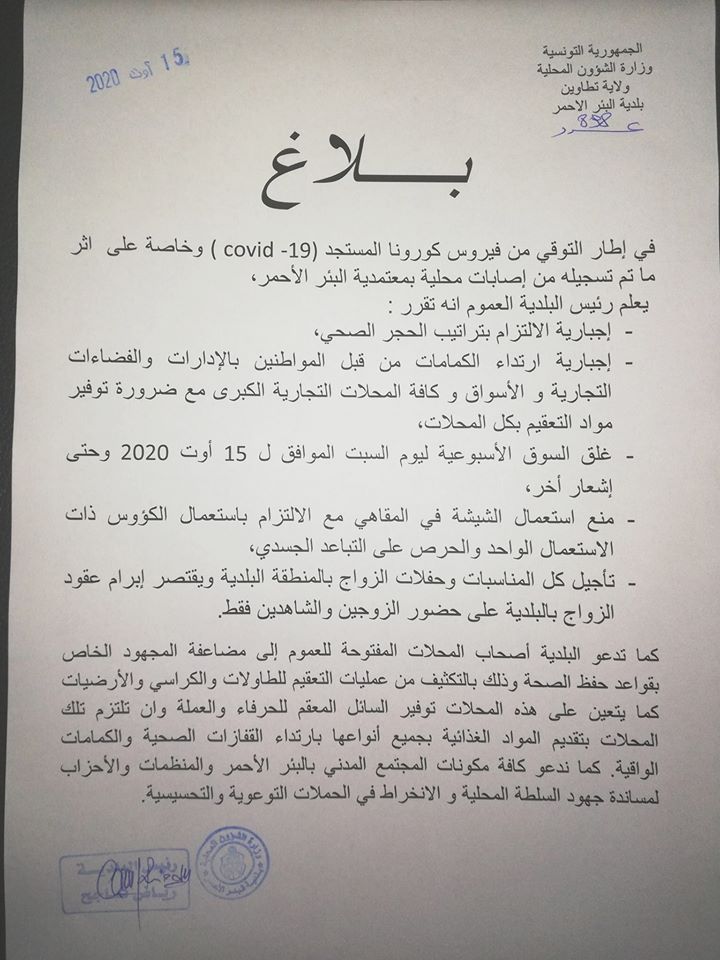 الجمهورية التونسية
وزارة الشؤون المحلية
ولاية تطاوين
بلدية البئر الاحمر
عـــدد 858
15 أوت 2020
بـــــلاغ
في إطار التوقي من فيروس كورونا المستجد (covid -19 ) وخاصة على اثر
ما تم تسجيله من إصابات محلية بمعتمدية البئر الأحمر،
يعلم رئيس البلدية العموم انه تقرر :
- إجبارية الالتزام بتراتيب الحجر الصحي،
- إجبارية ارتداء الكمامات من قبل المواطنين بالإدارات والفضاءات
التجارية و الأسواق و كافة المحلات التجارية الكبرى مع ضرورة توفير
مواد التعقيم بكل المحلات،
- غلق السوق الأسبوعية ليوم السبت الموافق ل 15 أوت 2020 وحتى
إشعار أخر،
- منع استعمال الشيشة في المقاهي مع الالتزام باستعمال الكؤوس ذات
الاستعمال الواحد والحرص على التباعد الجسدي،
- تأجيل كل المناسبات وحفلات الزواج بالمنطقة البلدية ويقتصر إبرام عقود
الزواج بالبلدية على حضور الزوجين والشاهدين فقط.
كما تدعو البلدية أصحاب المحلات المفتوحة للعموم إلى مضاعفة المجهود الخاص
بقواعد حفظ الصحة وذلك بالتكثيف من عمليات التعقيم للطاولات والكراسي والأرضيات
كما يتعين على هذه المحلات توفير السائل المعقم للحرفاء والعملة وان تلتزم تلك
المحلات بتقديم المواد الغذائية بجميع أنواعها بارتداء القفازات الصحية والكمامات
الواقية. كما ندعو كافة مكونات المجتمع المدني بالبئر الأحمر والمنظمات والأحزاب
لمساندة جهود السلطة المحلية و الانخراط في الحملات التوعوية والتحسيسية.
وزارة الشؤون المحلية
بلدية البئر الأحمر